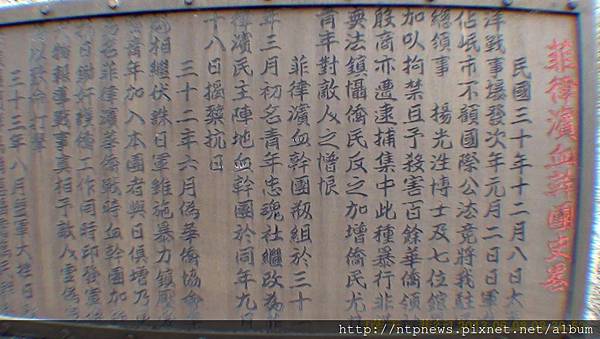 菲律濱血幹團史畧
民國三十年十二月八日太
洋戰事爆發次年元月二日日軍
佔岷市不顧國際公法竟將我駐
總領事 楊光泩博士及七位館
加以拘禁且予殺害百餘華僑領
殷商亦遭逮捕集中此種暴行非
法鎮懾僑民反之加增僑民尤
青年對敵人之憎恨
菲律濱血幹團初組於三十一
年三月初名青年忠魂社繼改為菲
律濱民主陣地血幹團於同年九月
十八日揭櫫抗日
三十二年六月偽華僑協會
相繼伏誅日軍雖施暴力鎮壓
青年加入本團者與日俱增乃
名菲律濱華僑戰時血幹團加
日鋤奸諜偵工作同時印發
報導戰事真相予敵人
以致命打擊
三十三年八月盟軍大
http://ntpnews.pixnet.net/album